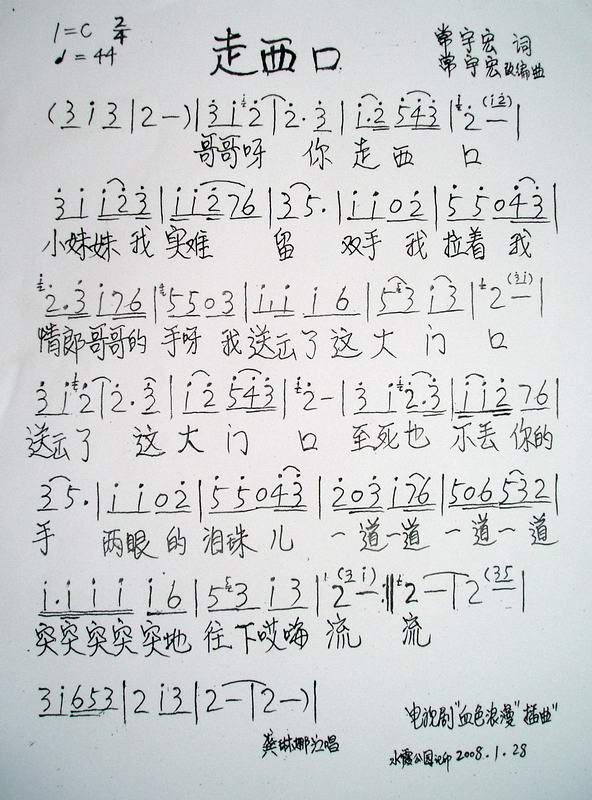 1=C 2/4
♩=44
走西口
常宇宏 词
常宇宏改编曲
(3 i 3 | 2 — ) | 3 i 2 | 2 . 3 | i . 2 5 4 3 | 2 — (i 2) |
哥哥呀 你 走 西 口
3 i i 2 3 | i i 2 7 6 | 3 5 . | i i 0 2 | 5 5 0 4 3 |
小妹妹 我 实难 留 双手 我 拉着 我
2 . 3 i 7 6 | 5 5 0 3 | i . i i 6 | 5 3 i 3 | 2 — (3 i) |
情郎哥哥的 手呀 我送出了这 大 门 口
3 i 2 | 2 . 3 | i 2 5 4 3 | 2 — | 3 i 2 . 3 | i i 2 7 6 |
送出了 这 大 门 口 至死也 不丢 你的
3 5 . | i i 0 2 | 5 5 0 4 3 | 2 0 3 i 7 6 | 5 0 6 5 3 2 |
手 两眼 的 泪珠 儿 一 道一道 一 道一 道
i . i i i i 6 | 5 3 i 3 | 2 — (3 i) :‖ 2 — | 2 — (3 5 |
突突突突突地 往 下哎嗨 流 流
3 i 6 5 3 | 2 i 3 | 2 — | 2 — ) |
电视剧"血色浪漫"插曲"
龚琳娜演唱
2008.1.28